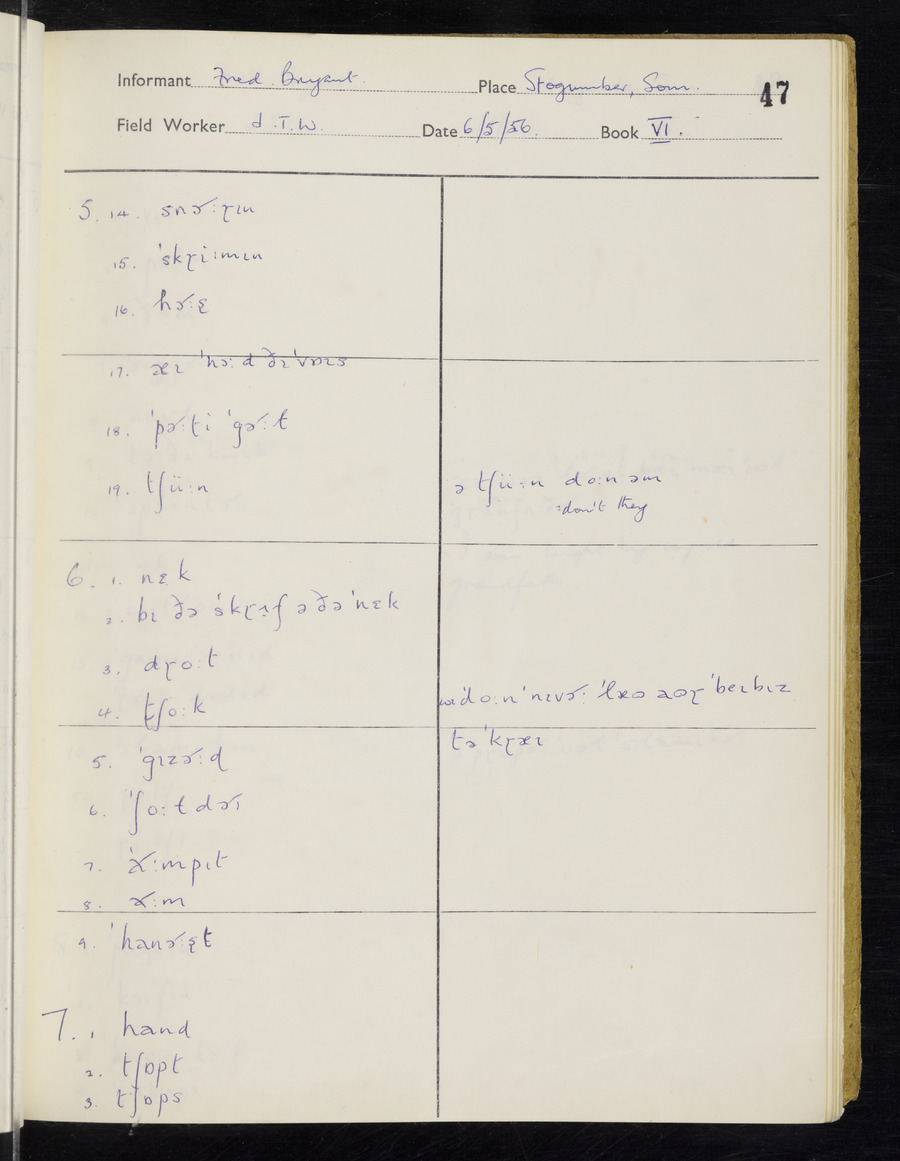 Informant Fred Bryant. Place Stogumber, Som. 47
Field Worker d.T.W. Date 6/5/56. Book VI.
5. 14. snɔ˞:ɽɪn
15. 'skɽi:mɪn
16. hɔ˞:ʂ
17. æɪ 'hə˞:d ðɪ'vɒɪs
18. 'pə˞:ti 'gə˞:t
19. tʃü:n
ə tʃü:n do:n əm
:don't they
6. 1. nɛk
2. bɪ ðə 'skɽʌf ə ðə 'nɛk
3. dɽo:t
4. tʃo:k
'do:n 'nɪvə˞: 'lɛo aoɽ 'beɪbɪz
5. 'gɪzə˞:d
tə 'kɽæɪ
6. 'ʃo:tdəɪ
7. 'ɑ˞:mpɪt
8. ɑ˞:m
9. 'hanə˞:ʂt
7. 1. hand
2. tʃɒpt
3. tʃɒps